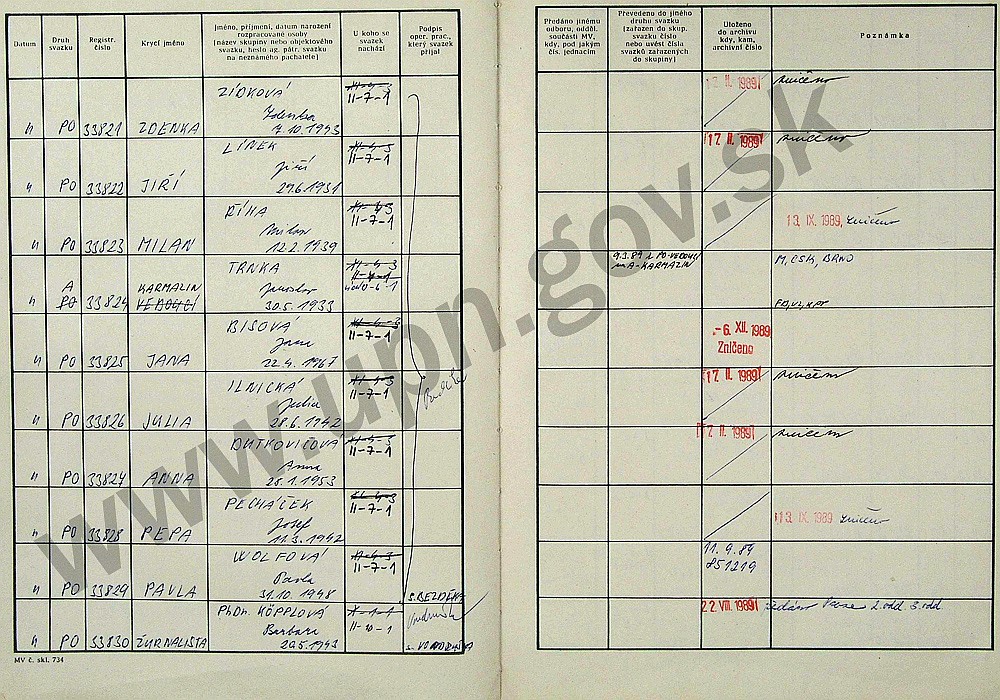 Datum
Druh svazku
Registr. číslo
Krycí jméno
Jméno, příjmení, datum narození
rozpracované osoby
(název skupiny nebo objektového
svazku, heslo ag. pátr. svazku
na neznámého pachatele)
U koho se
svazek
nachází
Podpis
oper. prac.,
který svazek
přijal
Předáno jinému
odboru, odděl.
součásti MV,
kdy, pod jakým
čís. jednacím
Převedeno do jiného
druhu svazku
(zařazen do skup.
svazku číslo
nebo uvést čísla
svazků zařazených
do skupiny)
Uloženo
do archivu
kdy, kam,
archivní číslo
Poznámka
ZÍDKOVÁ II-7-1
Zdenka
PO 33821 ZDENKA 7.10.1943
17. II. 1989 zničeno
LÍNEK II-7-1
Jiří
PO 33822 JIŘÍ 29.6.1931
17. II. 1989 zničeno
ŘÍHA II-7-1
Milan
PO 33823 MILAN 12.2.1939
13. IX. 1989 zničeno
TRNKA
A KARMAZIN Jaroslav
PO 33824 VEDOUCÍ 30.5.1933
9.3.89 z PO-VEDOUCÍ
na A-KARMAZIN
M, ČSK, BRNO
BISOVÁ II-7-1
Jana
PO 33825 JANA 22.4.1967
-6. XII. 1989
Zničeno
ILNICKÁ II-7-1
Julia
PO 33826 JULIA 28.6.1942
17. II. 1989 zničeno
DUTKOVIČOVÁ II-7-1
Anna
PO 33827 ANNA 28.1.1953
17. II. 1989 zničeno
PECHÁČEK II-7-1
Josef
PO 33828 PEPA 11.3.1942
13. IX. 1989 zničeno
WOLFOVÁ II-7-1
Pavla
PO 33829 PAVLA 31.10.1948 s. BEZDĚKA
11.9.89
851219
PhDr. KÖPPLOVÁ II-10-1
Barbara
PO 33830 ŽURNALISTA 29.5.1943
22. VIII. 1989 2. odd 3. odd
MV č. skl. 734
www.upn.gov.sk